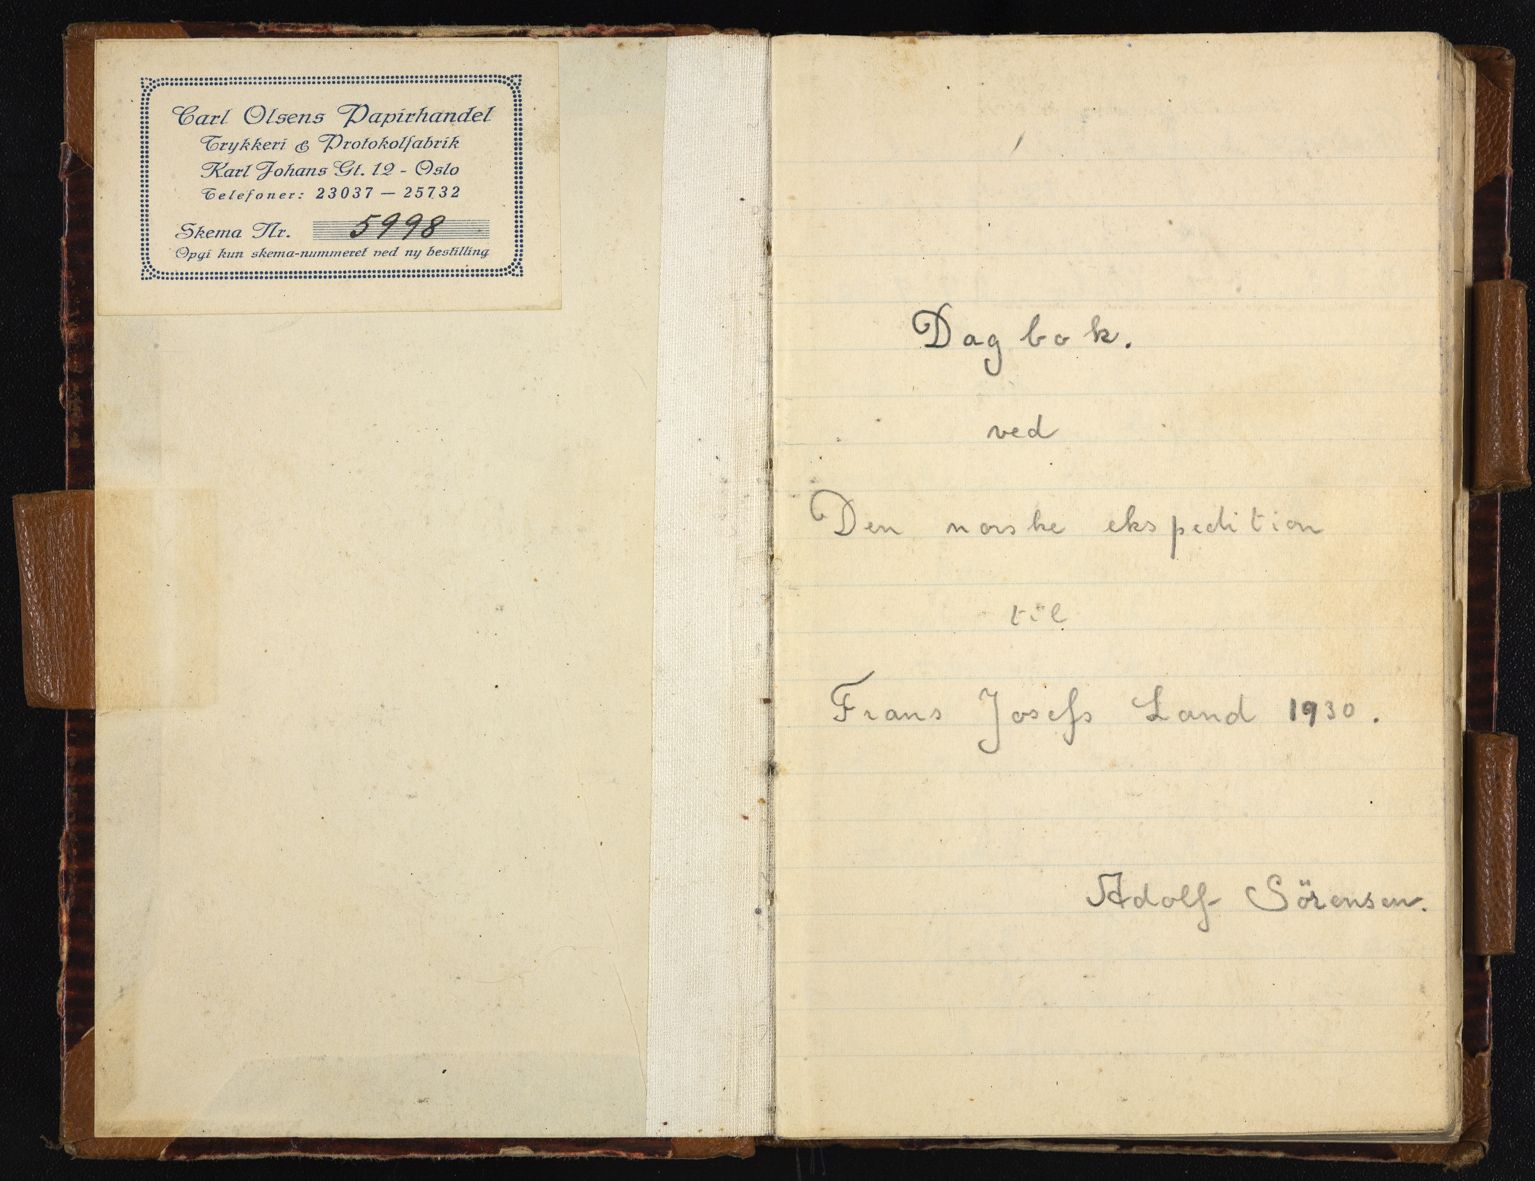 Carl Olsens Papirhandel
Trykkeri & Protokolfabrik
Karl Johans Gt. 12 - Oslo
Telefoner: 23037 — 25732
Skema Nr. 5998
Opgi kun skema-nummeret ved ny bestilling
Dagbok.
ved
Den norske ekspedition
til
Frans Josefs Land 1930.
Adolf Sörensen.